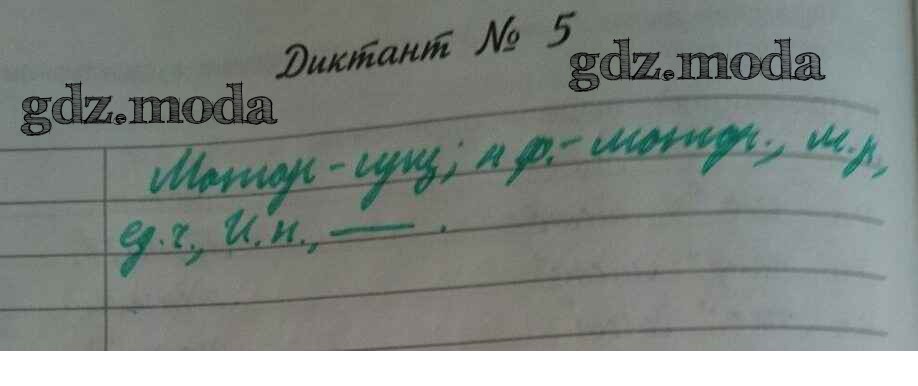 Диктант № 5
gdz.moda
gdz.moda
Мотор - сущ; н.ф.- мотор., м.р,
ед.ч., И.п., — .